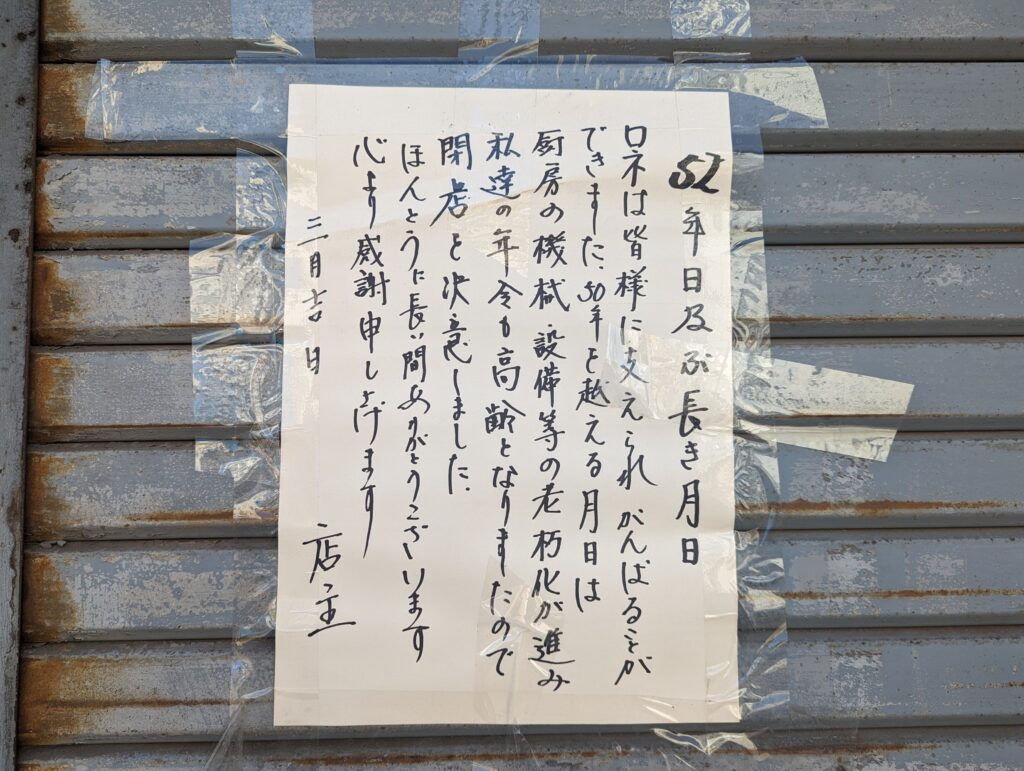 52年日及ぶ長き月日
ロネは皆様に支えられ がんばることが
できました、50年を越える月日は
厨房の機械 設備等の老朽化が進み
私達の年令も高齢となりましたので
閉店を決意しました、
ほんとうに長い間ありがとうございます
心より感謝申し上げます
三月吉日
店主